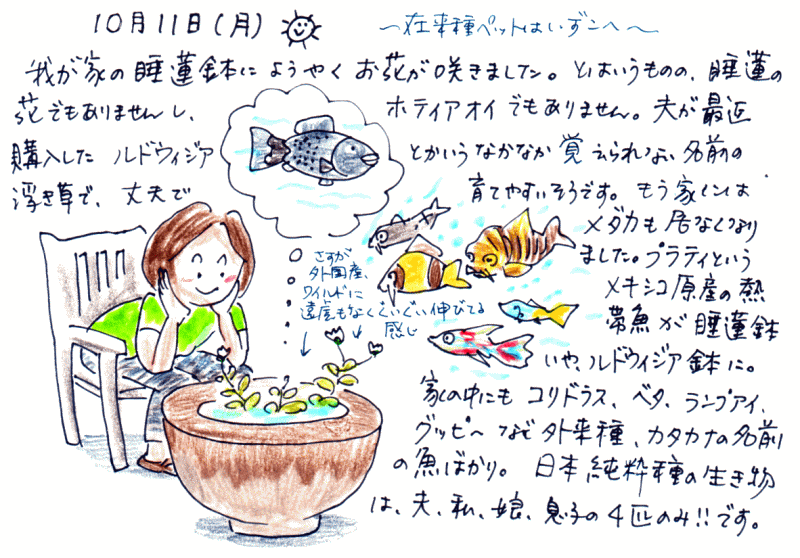 10月11日(月)
〜在来種ペットはいずこへ〜
我が家の睡蓮鉢にようやくお花が咲きました。とはいうものの、睡蓮の
花でもありませんし、ホテイアオイでもありません。夫が最近
購入したルドウィジアとかいうなかなか覚えられない名前の
浮き草で、丈夫で育てやすいそうです。もう家には
メダカも居なくなり
ました。プラティという
メキシコ原産の熱
帯魚が睡蓮鉢
いや、ルドウィジア鉢に。
家の中にもコリドラス、ベタ、ランプアイ、
グッピーなど外来種、カタカナの名前
の魚ばかり。日本純粋種の生き物
は、夫、私、娘、息子の4匹のみ!!です。
さすが
外国産、
ワイルドに
遠慮もなくぐいぐい伸びてる
感じ